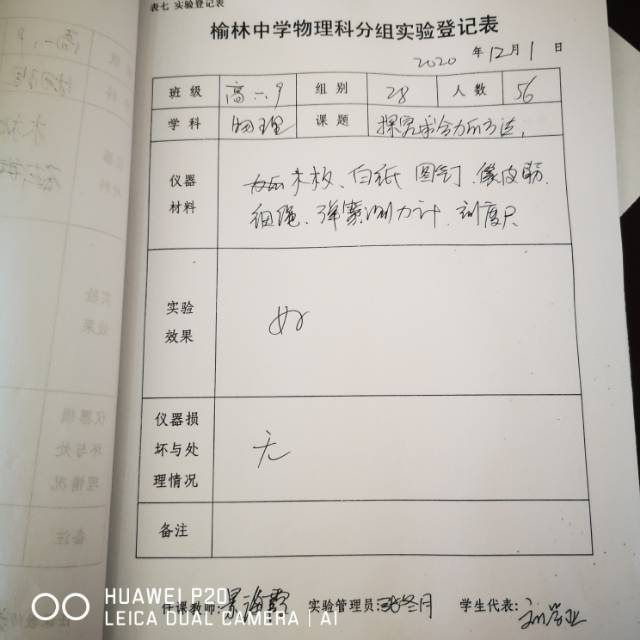 表七 实验登记表
榆林中学物理科分组实验登记表
2020 年 12 月 1 日
班级 高一.9 组别 28 人数 56
学科 物理 课题 探究求合力的方法.
仪器材料 木板、白纸 图钉、橡皮筋、
细绳、弹簧测力计、刻度尺
实验效果 好
仪器损坏与处理情况 无
备注
任课教师: 实验管理员: 学生代表:
HUAWEI P20
LEICA DUAL CAMERA | AI